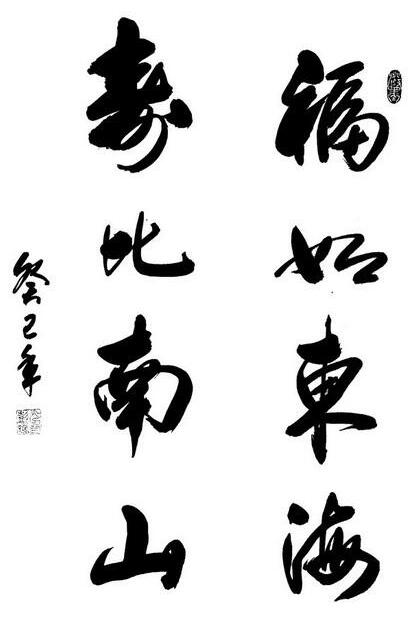 福如東海
寿比南山
癸巳年